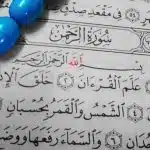 فِي مَقْعَدِ صِدْقٍ
سُورَةُ الرَّحْمَٰن
بِسْمِ اللَّهِ الرَّحْمَٰنِ الرَّحِيمِ
عَلَّمَ الْقُرْءَانَ ٢ خَلَقَ الْإِ
الشَّمْسُ وَالْقَمَرُ بِحُسْبَانٍ
وَالسَّمَاءَ رَفَعَهَا وَوَضَ